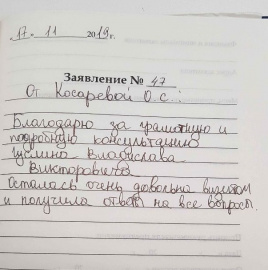 17. 11 2019г.
Заявление № 47
От Косаревой О.С.:
Благодарю за грамотную и
подробную консультацию
Владислава
Викторовича
Осталась очень довольна визитом
и получила ответы на все вопросы.